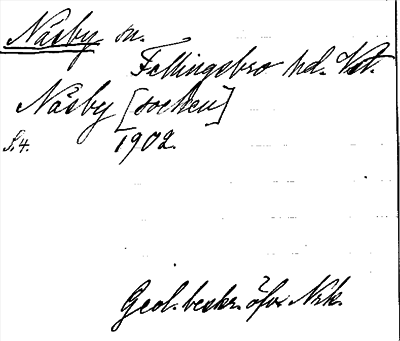 Näsby sn.
Fellingsbro hd. Vst.
Näsby [socken]
S.4. 1902.
Geol. beskr. öfver Nrk.